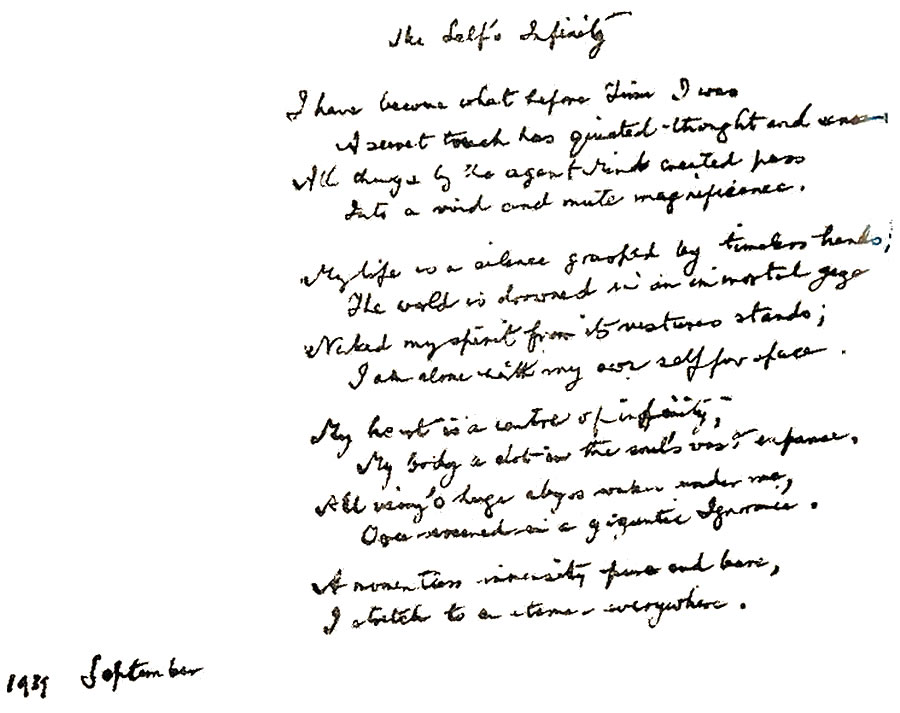 The Self's Infinity
I have become what before Time I was
A secret touch has quieted thought and
All things by the agent Mind created pass
Into a void and mute magnificence.
My life is a silence grasped by timeless hands;
The world is drowned in an immortal gaze
Naked my spirit from its vestures stands;
I am alone with my own self for space.
My heart is a centre of infinity;
My body a dot in the soul's vast expanse,
All being's huge abyss wakes under me,
Once screened in a gigantic Ignorance.
A momentless immensity pure and bare,
I stretch to an eternal everywhere.
1939 September